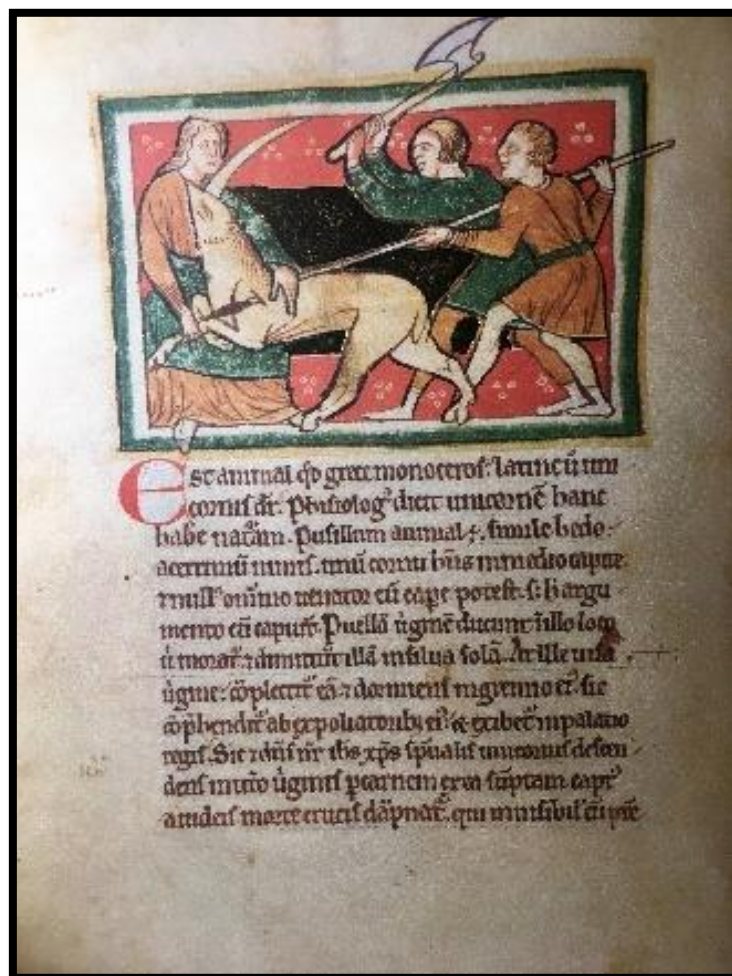 Est animal qd grece monoceros. latine ū uni
cornis dr̄. Phisiolog᾽ dicit unicornē hanc
habe natām. Pusillum animal ÷. simile hedo.
acerrimū nimis. unū cornu hn̄s in medio capite.
⁊ null᾽ omnino uenator eū cape potest. s; h argu
mento eū capiūt. Puellā ūginē ducunt ī illo loco
ū morat᾽. ⁊ dimittūt illā in silua solā. At ille uisa
ūgine. cōplectit᾽ eā ⁊ dormiens in gremio ei᾽. sic
cōphendit᾽ ab expoliatorib; ei᾽. & exibet᾽ in palatio
regis. Sic ⁊ dn̄s nr̄ ihs xp̄s sp̄ualis unicornis descen
dens in utero ūginis p carnem ex ea sūptam capt᾽
a iudeis morte crucis dāpnat᾽. qui inuisibil᾽ cū pr̄e